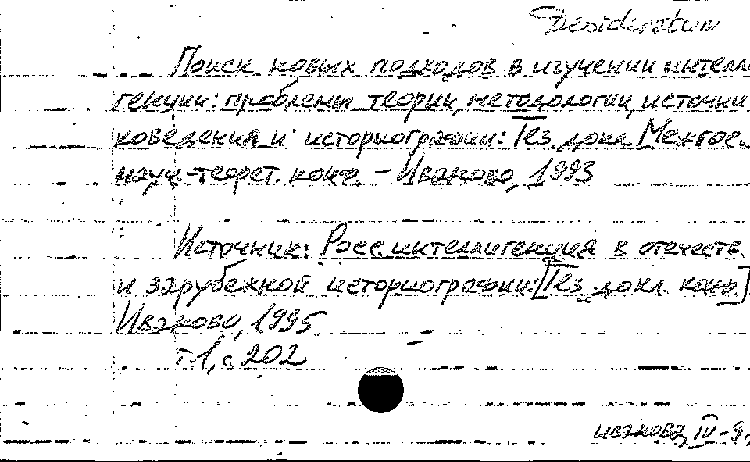 Desideratum
Поиск новых подходов в изучении интелли
генции: проблемы теории, методологии, источни
коведения и историографии: Тез. докл. Межгос.
науч.-теорет. конф. - Иваново, 1993
Источник: Росс. интеллигенция в отечеств.
и зарубежной историографии: [Тез. докл. конф.]
Иваново, 1995.
т.1, с. 202
иваново, IV-9,